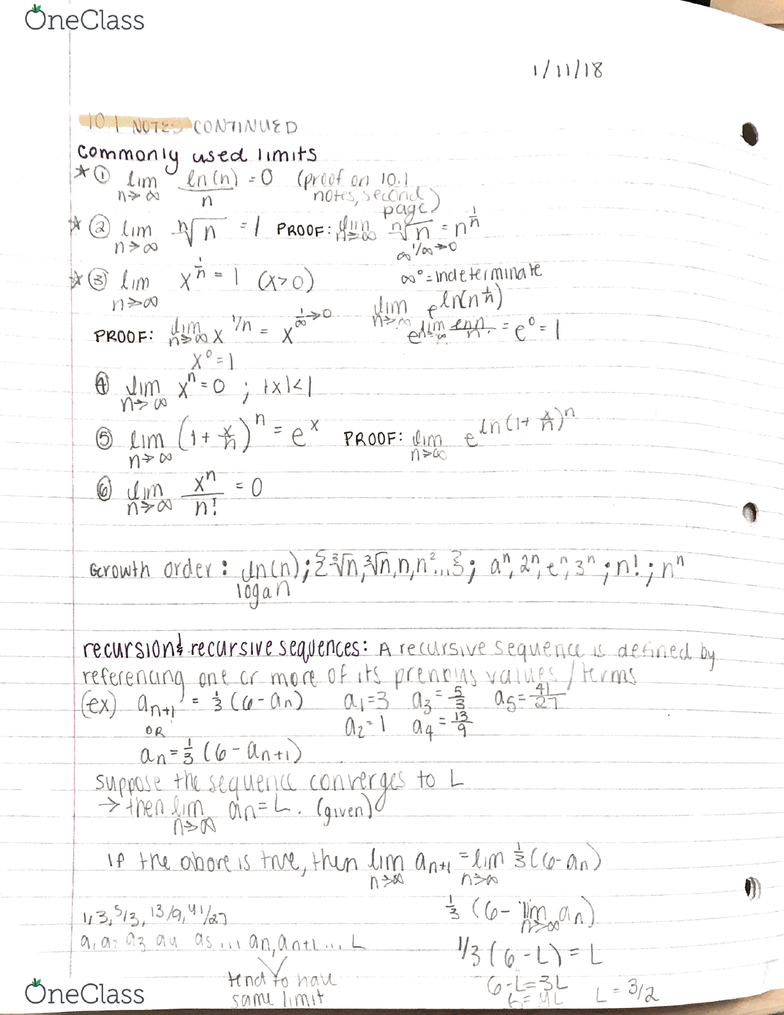 OneClass
1/11/18
10.1 NOTES CONTINUED
commonly used limits
★① lim n→∞ ln(n)/n = 0 (proof on 10.1
notes, second
page)
★② lim n→∞ ⁿ√n = 1 PROOF: lim n→∞ ⁿ√n = n^(1/n)
∞^(1/∞→0)
★③ lim n→∞ x^(1/n) = 1 (x>0) ∞⁰ = indeterminate
lim n→∞ e^(ln(n^(1/n)))
PROOF: lim n→∞ x^(1/n) = x^(1/∞→0) e^(lim n→∞ ln n/n) = e⁰ = 1
x⁰ = 1
④ lim n→∞ xⁿ = 0 ; |x|<1
⑤ lim n→∞ (1 + x/n)ⁿ = eˣ PROOF: lim n→∞ e^(ln(1 + x/n)ⁿ)
⑥ lim n→∞ xⁿ/n! = 0
Growth order: ln(n); {³√n, ³√n, n, n²...}; aⁿ, 2ⁿ, eⁿ, 3ⁿ; n!; nⁿ
logan
recursion & recursive sequences: A recursive sequence is defined by
referencing one or more of its previous values/terms
(ex) aₙ₊₁ = 1/3 (6-aₙ) a₁=3 a₃=5/3 a₅=41/27
OR a₂=1 a₄=13/9
aₙ = 1/3 (6-aₙ₊₁)
suppose the sequence converges to L
→ then lim n→∞ aₙ = L. (given)
If the above is true, then lim n→∞ aₙ₊₁ = lim n→∞ 1/3(6-aₙ)
1/3 (6- lim n→∞ aₙ)
1, 3, 5/3, 13/9, 41/27
a₁ a₂ a₃ a₄ a₅ ... aₙ, aₙ₊₁ ... L
1/3 (6-L) = L
tend to have
same limit
6-L=3L
6=4L L = 3/2
OneClass